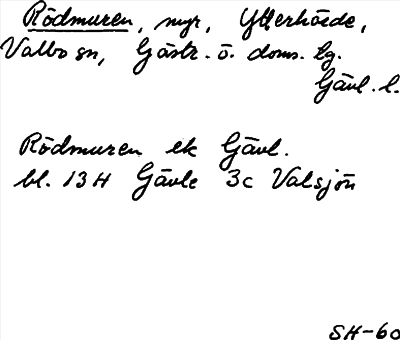 Rödmuren, myr, Ytterhärde,
Valbo sn, Gästr. ö. doms. tg.
Gävl. l.
Rödmuren ek Gävl.
bl. 13H Gävle 3c Valsjön
SH-60